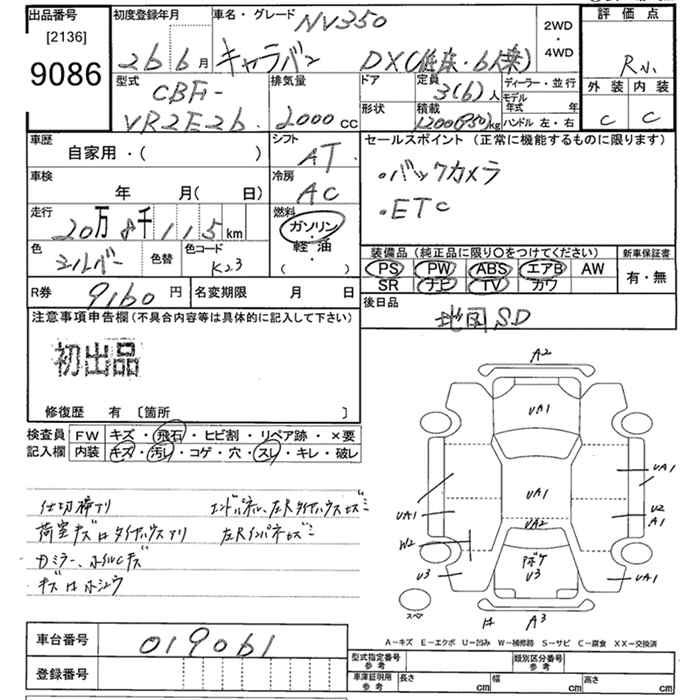 出品番号
[2136]
9086
初度登録年月
26年6月
車名・グレード NV350
キャラバン DX(低床・6人乗)
2WD
・
4WD
評価点
R小
外装 内装
C C
型式
CBF-
VR2E26
排気量
2000cc
ドア
形状
定員
3(6)人
積載
1200(950)kg
ディーラー・並行
モデル年式 年
ハンドル 左・右
車歴
自家用・( )
シフト
AT
車検
年 月( 日)
冷房
AC
走行
20万8千115km
燃料
ガソリン
・
軽油
・
( )
色
シルバー
色替
色コード
K23
R券 9160円
名変期限 月 日
セールスポイント (正常に機能するものに限ります)
・バックカメラ
・ETC
装備品(純正品に限り○をつけてください)
新車保証書
PS PW ABS エアB AW
SR ナビ TV カワ
有・無
後日品
地図SD
注意事項申告欄(不具合内容等は具体的に記入して下さい)
初出品
修復歴 有 [箇所 ]
検査員
記入欄
FW キズ・飛石・ヒビ割・リペア跡・×要
内装 キズ・汚レ・コゲ・穴・スレ・キレ・破レ
仕切棒アリ
荷室キズ
タイヤハウス
ホイルCキズ
左R
A2
UA1
UA1
UA1
UA1
UA2
U2
A1
W2
U3
アボケ
U3
UA1
スペア
A3
A-キズ E-エクボ U-凹み W-補修跡 S-サビ C-腐食 XX-交換済
車台番号 019061
登録番号
型式指定番号
参考
類別区分番号
参考
車庫証明用
参考
長さ cm
幅 cm
高さ cm